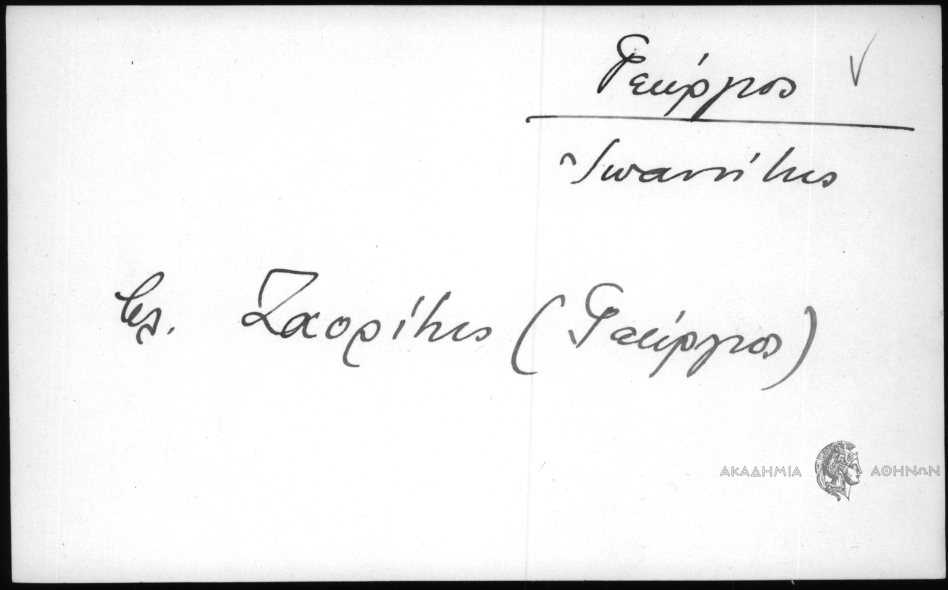 Γεώργιος
Ἰωαννίτης
βλ. Ζαορίτης (Γεώργιος)
ΑΚΑΔΗΜΙΑ ΑΘΗΝΩΝ